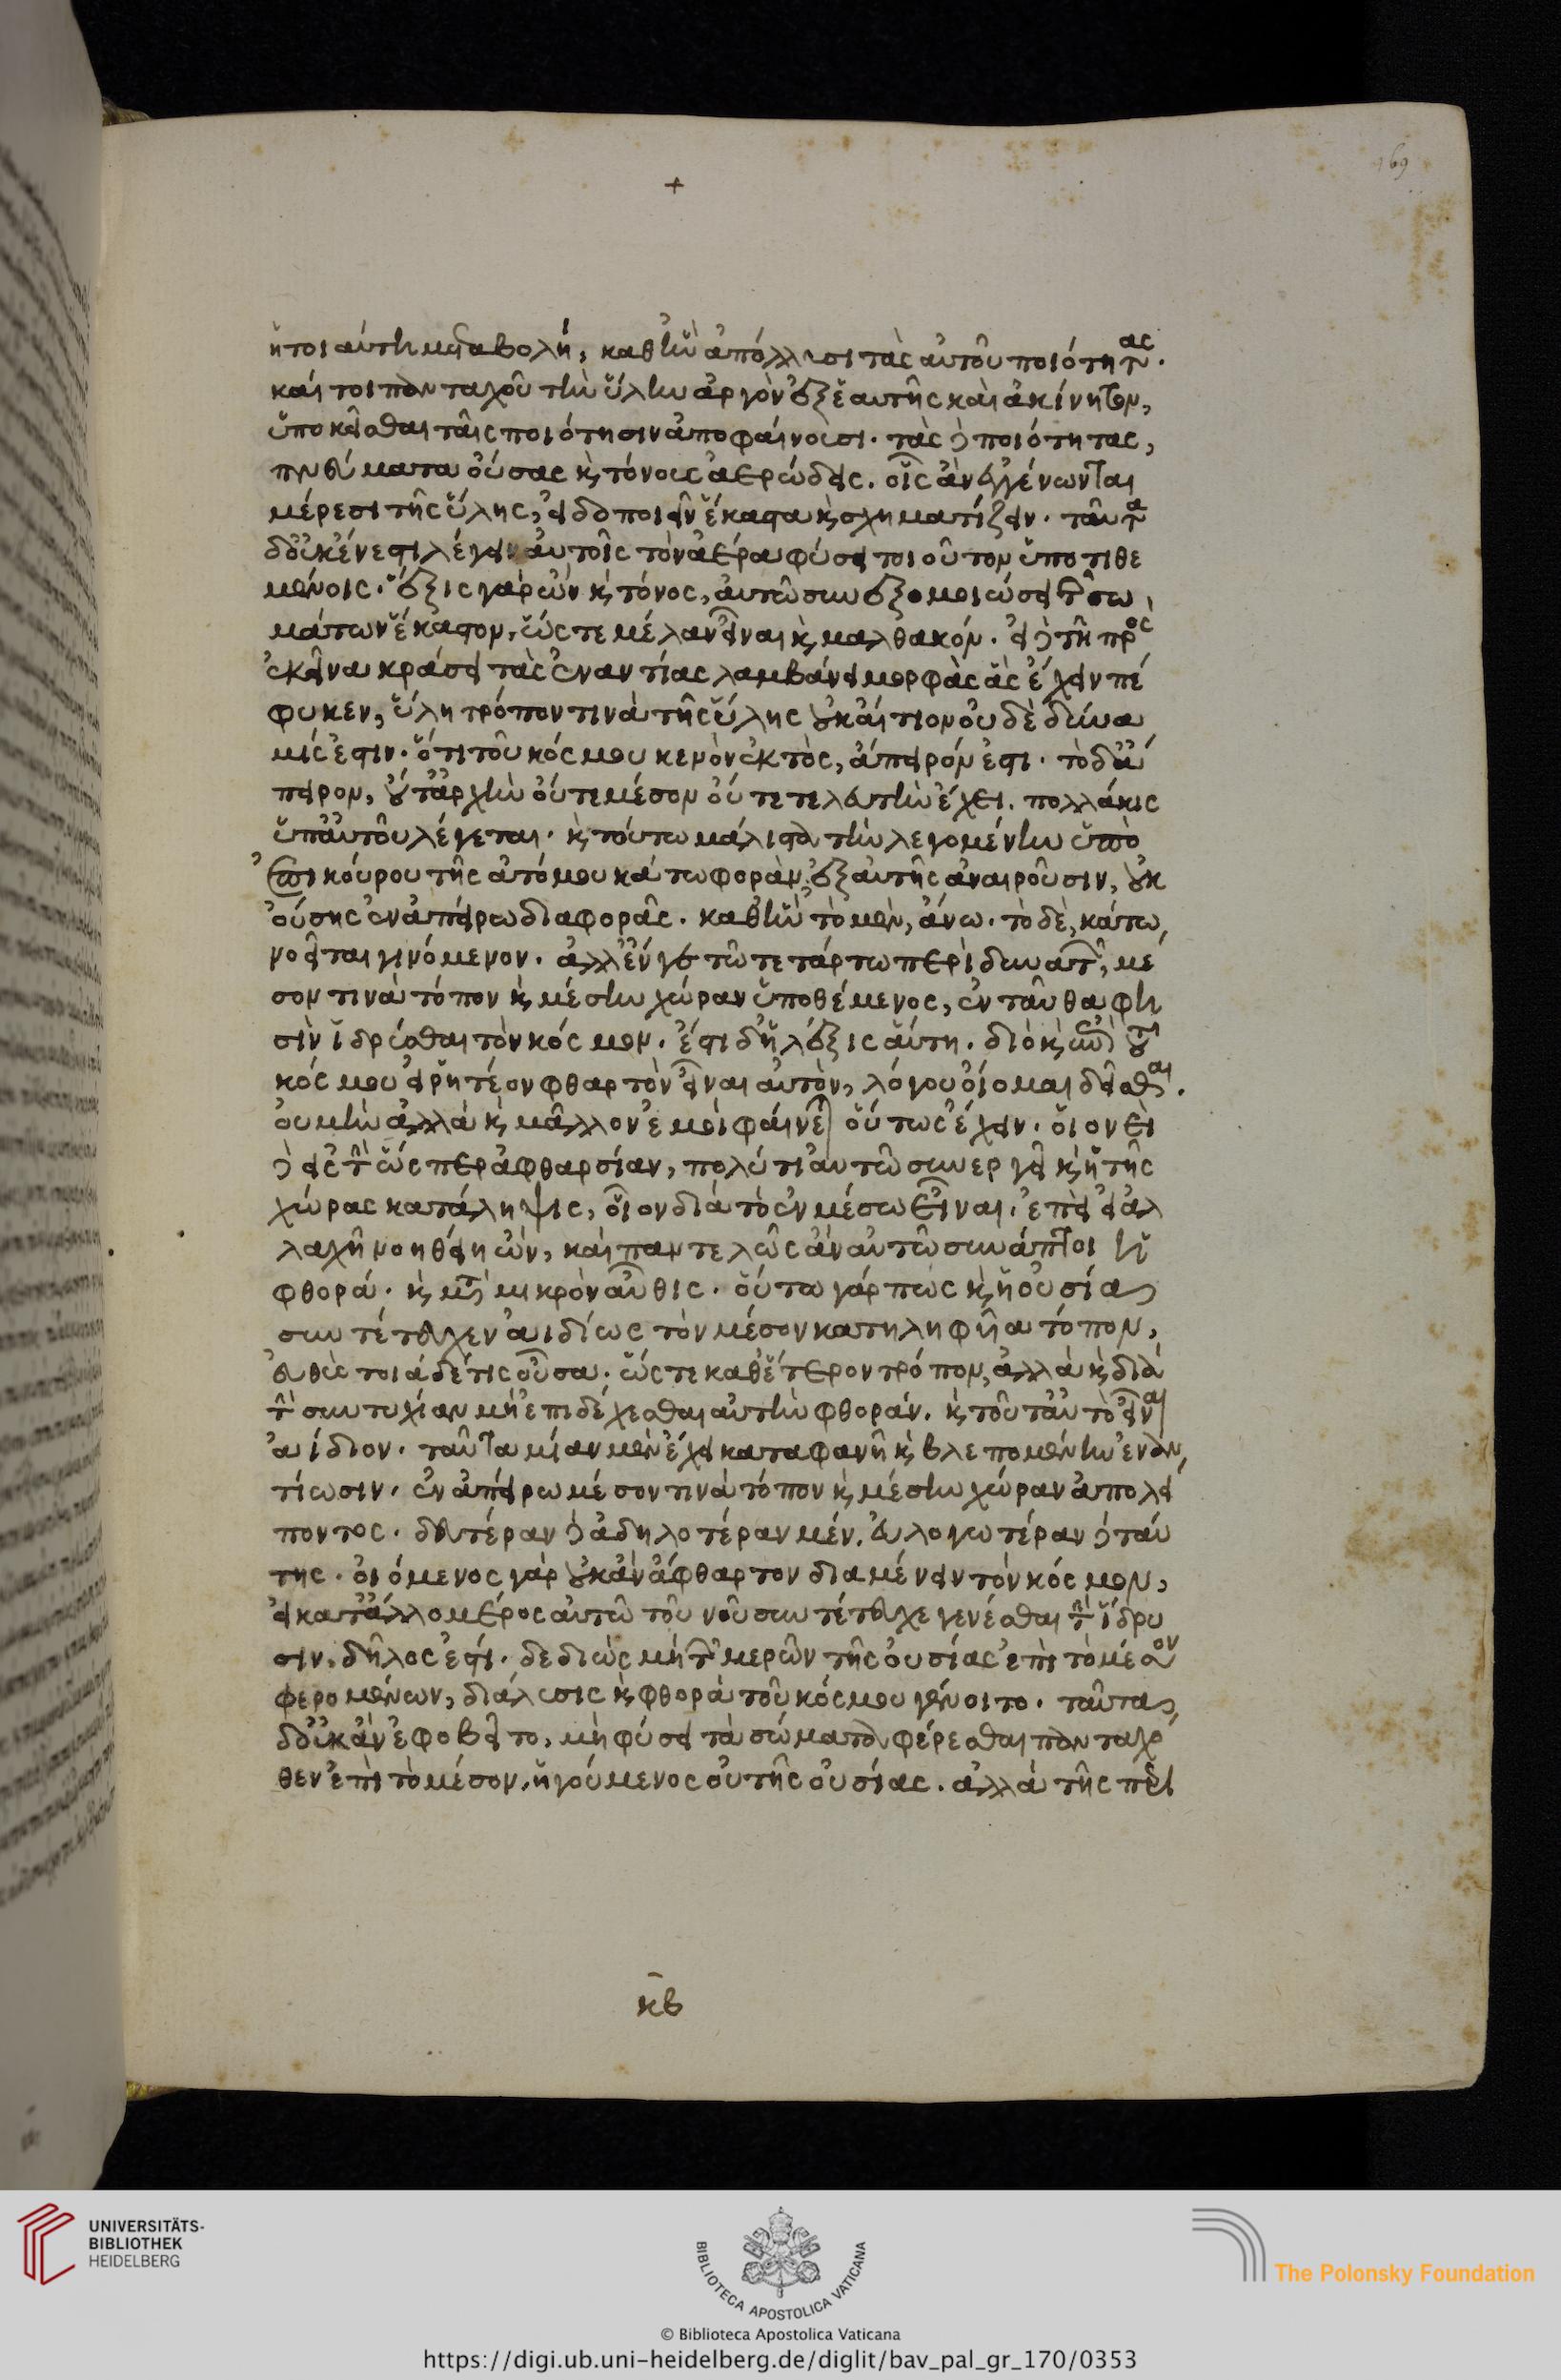 169
+
ἤτοι αὕτη μεταβολή, καθ' ἣν ἀπόλλυσι τὰς αὑτοῦ ποιότητας.
καίτοι πανταχοῦ τὴν ὕλην ἀργὸν ἐξ ἑαυτῆς καὶ ἀκίνητον,
ὑποκεῖσθαι ταῖς ποιότησιν ἀποφαίνουσι. τὰς δὲ ποιότητας,
πνεύματα οὔσας καὶ τόνους ἀερώδεις. οἷς ἂν ἐγγένωνται
μέρεσι τῆς ὕλης, εἰδοποιεῖν ἕκαστα καὶ σχηματίζειν. ταῦτα
δ' οὐκ ἔνεστι λέγειν αὐτοῖς τὸν ἀέρα φύσει τοιοῦτον ὑποτιθε
μένοις. ἕξις γὰρ ὢν καὶ τόνος, αὐτῷ συνεξομοιώσει τῶν σω
μάτων ἕκαστον, ὥστε μέλαν εἶναι καὶ μαλθακόν. εἰ δὲ τῇ πρὸς
ἐκεῖνα κράσει τὰς ἐναντίας λαμβάνει μορφὰς ἃς ἔχειν πέ
φυκεν, ὕλη τρόπον τινὰ τῆς ὕλης οὐκ αἴτιον οὐδὲ δύνα
μίς ἐστιν. ὅτι τοῦ κόσμου κενὸν ἐκτὸς, ἄπειρόν ἐστι. τὸ δ' ἄ
πειρον, οὔτ' ἀρχὴν οὔτε μέσον οὔτε τελευτὴν ἔχει. πολλάκις
ὑπ' αὐτοῦ λέγεται. καὶ τούτῳ μάλιστα τὴν λεγομένην ὑπὸ
ἐπικούρου τῆς ἀτόμου κάτω φορὰν ἐξ αὑτῆς ἀναιροῦσιν, οὐκ
οὔσης ἐν ἀπείρῳ διαφορᾶς. καθ' ἣν τὸ μὲν, ἄνω. τὸ δὲ, κάτω,
νοεῖται γινόμενον. ἀλλ' ἔν γε τῷ τετάρτῳ περὶ δυνατῶν, μέ
σον τινὰ τόπον καὶ μέσην χώραν ὑποθέμενος, ἐνταῦθα φη
σὶν ἱδρύσθαι τὸν κόσμον. ἔστι δ' ἡ λέξις αὕτη. διὸ καὶ ἐπὶ τοῦ
κόσμου εἰ ῥητέον φθαρτὸν εἶναι αὐτὸν, λόγου οἴομαι δεῖσθαι.
οὐ μὴν ἀλλὰ καὶ μᾶλλον ἐμοὶ φαίνεται οὕτως ἔχειν. οἱονεὶ
δὲ εἰς τὴν ὥσπερ ἀφθαρσίαν, πολύ τι αὐτῷ συνεργεῖ καὶ ἡ τῆς
χώρας κατάληψις, οἷον διὰ τὸ ἐν μέσῳ εἶναι. ἐπεὶ εἰ ἀλ
λαχῆ νοηθείη ὢν, καὶ παντελῶς ἂν αὐτῷ συνάπτοι ἡ
φθορά. καὶ μετὰ μικρὸν αὖθις. οὕτω γάρ πως καὶ ἡ οὐσία
συντέτευχεν ἀϊδίως τὸν μέσον κατηληφῆα τόπον,
εὐθὺς τοιάδέ τις οὖσα. ὥστε καθ' ἕτερον τρόπον, ἀλλὰ καὶ διὰ
τὴν συντυχίαν μὴ ἐπιδέχεσθαι αὐτὴν φθοράν. καὶ τοῦτ' αὐτὸ εἶναι
ἀΐδιον. ταῦτα μίαν μὲν ἔχει καταφανῆ καὶ βλεπομένην ἐναν
τίωσιν. ἐν ἀπείρῳ μέσον τινὰ τόπον καὶ μέσην χώραν ἀπολεί
ποντος. δευτέραν δὲ ἀδηλοτέραν μέν. εὐλογωτέραν δὲ ταύ
της. οἰόμενος γὰρ οὐκ ἂν ἄφθαρτον διαμένειν τὸν κόσμον,
εἰ κατ' ἄλλο μέρος αὐτῷ τοῦ νοῦ συντέτευχε γενέσθαι τὴν ἵδρυ
σιν, δῆλός ἐστι. δεδιὼς μὴ τῶν μερῶν τῆς οὐσίας ἐπὶ τὸ μέσον
φερομένων, διάλυσις καὶ φθορὰ τοῦ κόσμου γένοιτο. ταῦτα
δ' οὐκ ἂν ἐφοβεῖτο, μὴ φύσει τὰ σώματα φέρεσθαι πανταχό
θεν ἐπὶ τὸ μέσον, ἡγούμενος οὐ τῆς οὐσίας. ἀλλὰ τῆς περι
κβ
UNIVERSITÄTS-
BIBLIOTHEK
HEIDELBERG
BIBLIOTECA APOSTOLICA VATICANA
The Polonsky Foundation
© Biblioteca Apostolica Vaticana
https://digi.ub.uni-heidelberg.de/diglit/bav_pal_gr_170/0353